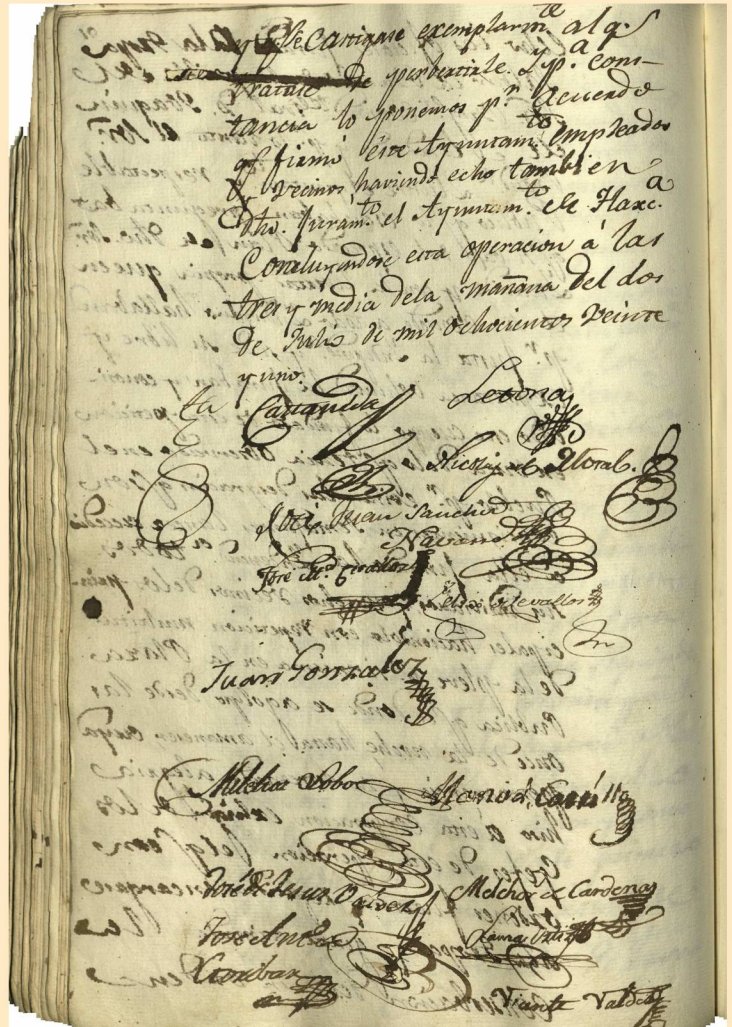 y Se Castigase exemplarm.te al q.e
tratase de perbertirle. Y p.a cons-
tancia lo ponemos p.r acuerdo
q.e firmó este Ayuntam.to empleados
y vecinos haviendo echo tambien
dho. juram.to el Ayuntam.to de Tlaxc.a
Concluyendose esta operacion á las
tres y media dela mañana del dos
de Julio de mil ochocientos veinte
y uno.
Castañeda Letona
Nicolas del Moral.
José Juan Sanchez
Navarro
José M.a Cevallos
Cevallos
Juan Gonzalez
Melchor Lobo Carrillo
José de Jesus Valdez Melchor de Cardenas
José Ant.o
Escobar
Vicente Valdez